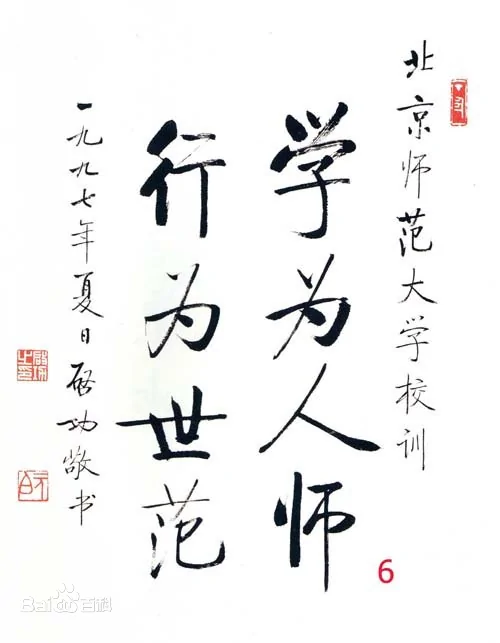 北京师范大学校训
学为人师
行为世范
一九九七年夏日启功敬书
6
Bai百科